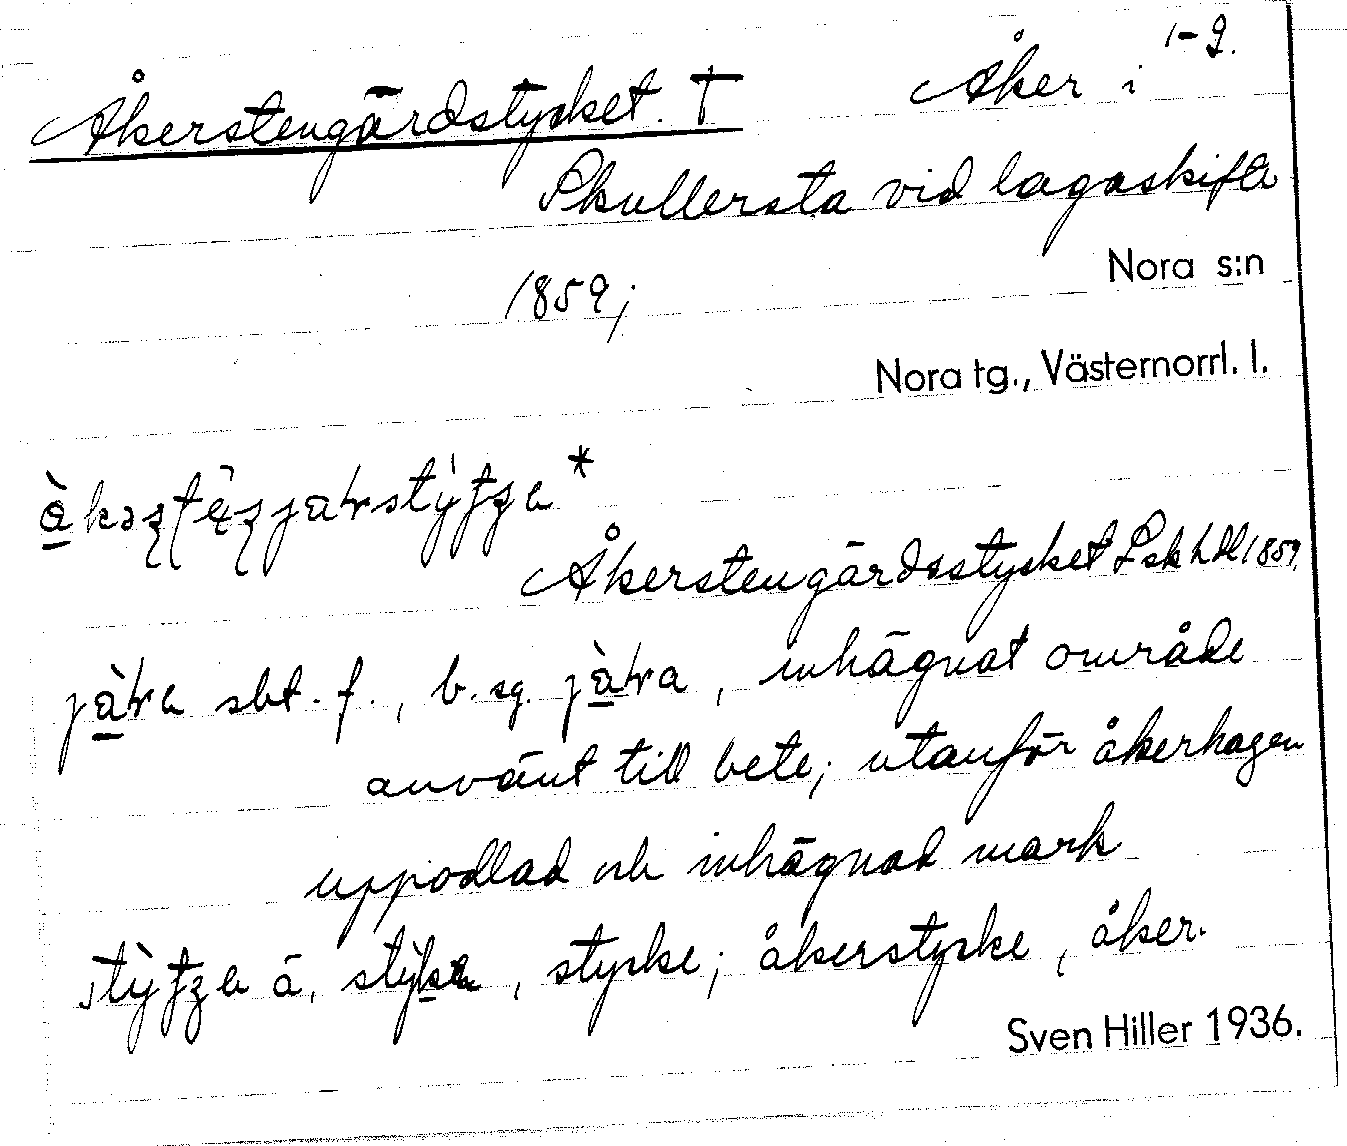 1-2.
Åkerstengärdstycket. † Åker i
Skullersta vid lagaskifte
1859;
Nora s:n
Nora tg., Västernorrl. l.
Åkerstengärdsstycket Lskh dl 1859.
sbt. f., b. sg. , inhägnat område
använt till bete; utanför åkerhagen
uppodlad och inhägnad mark
, stycke; åkerstycke, åker.
Sven Hiller 1936.